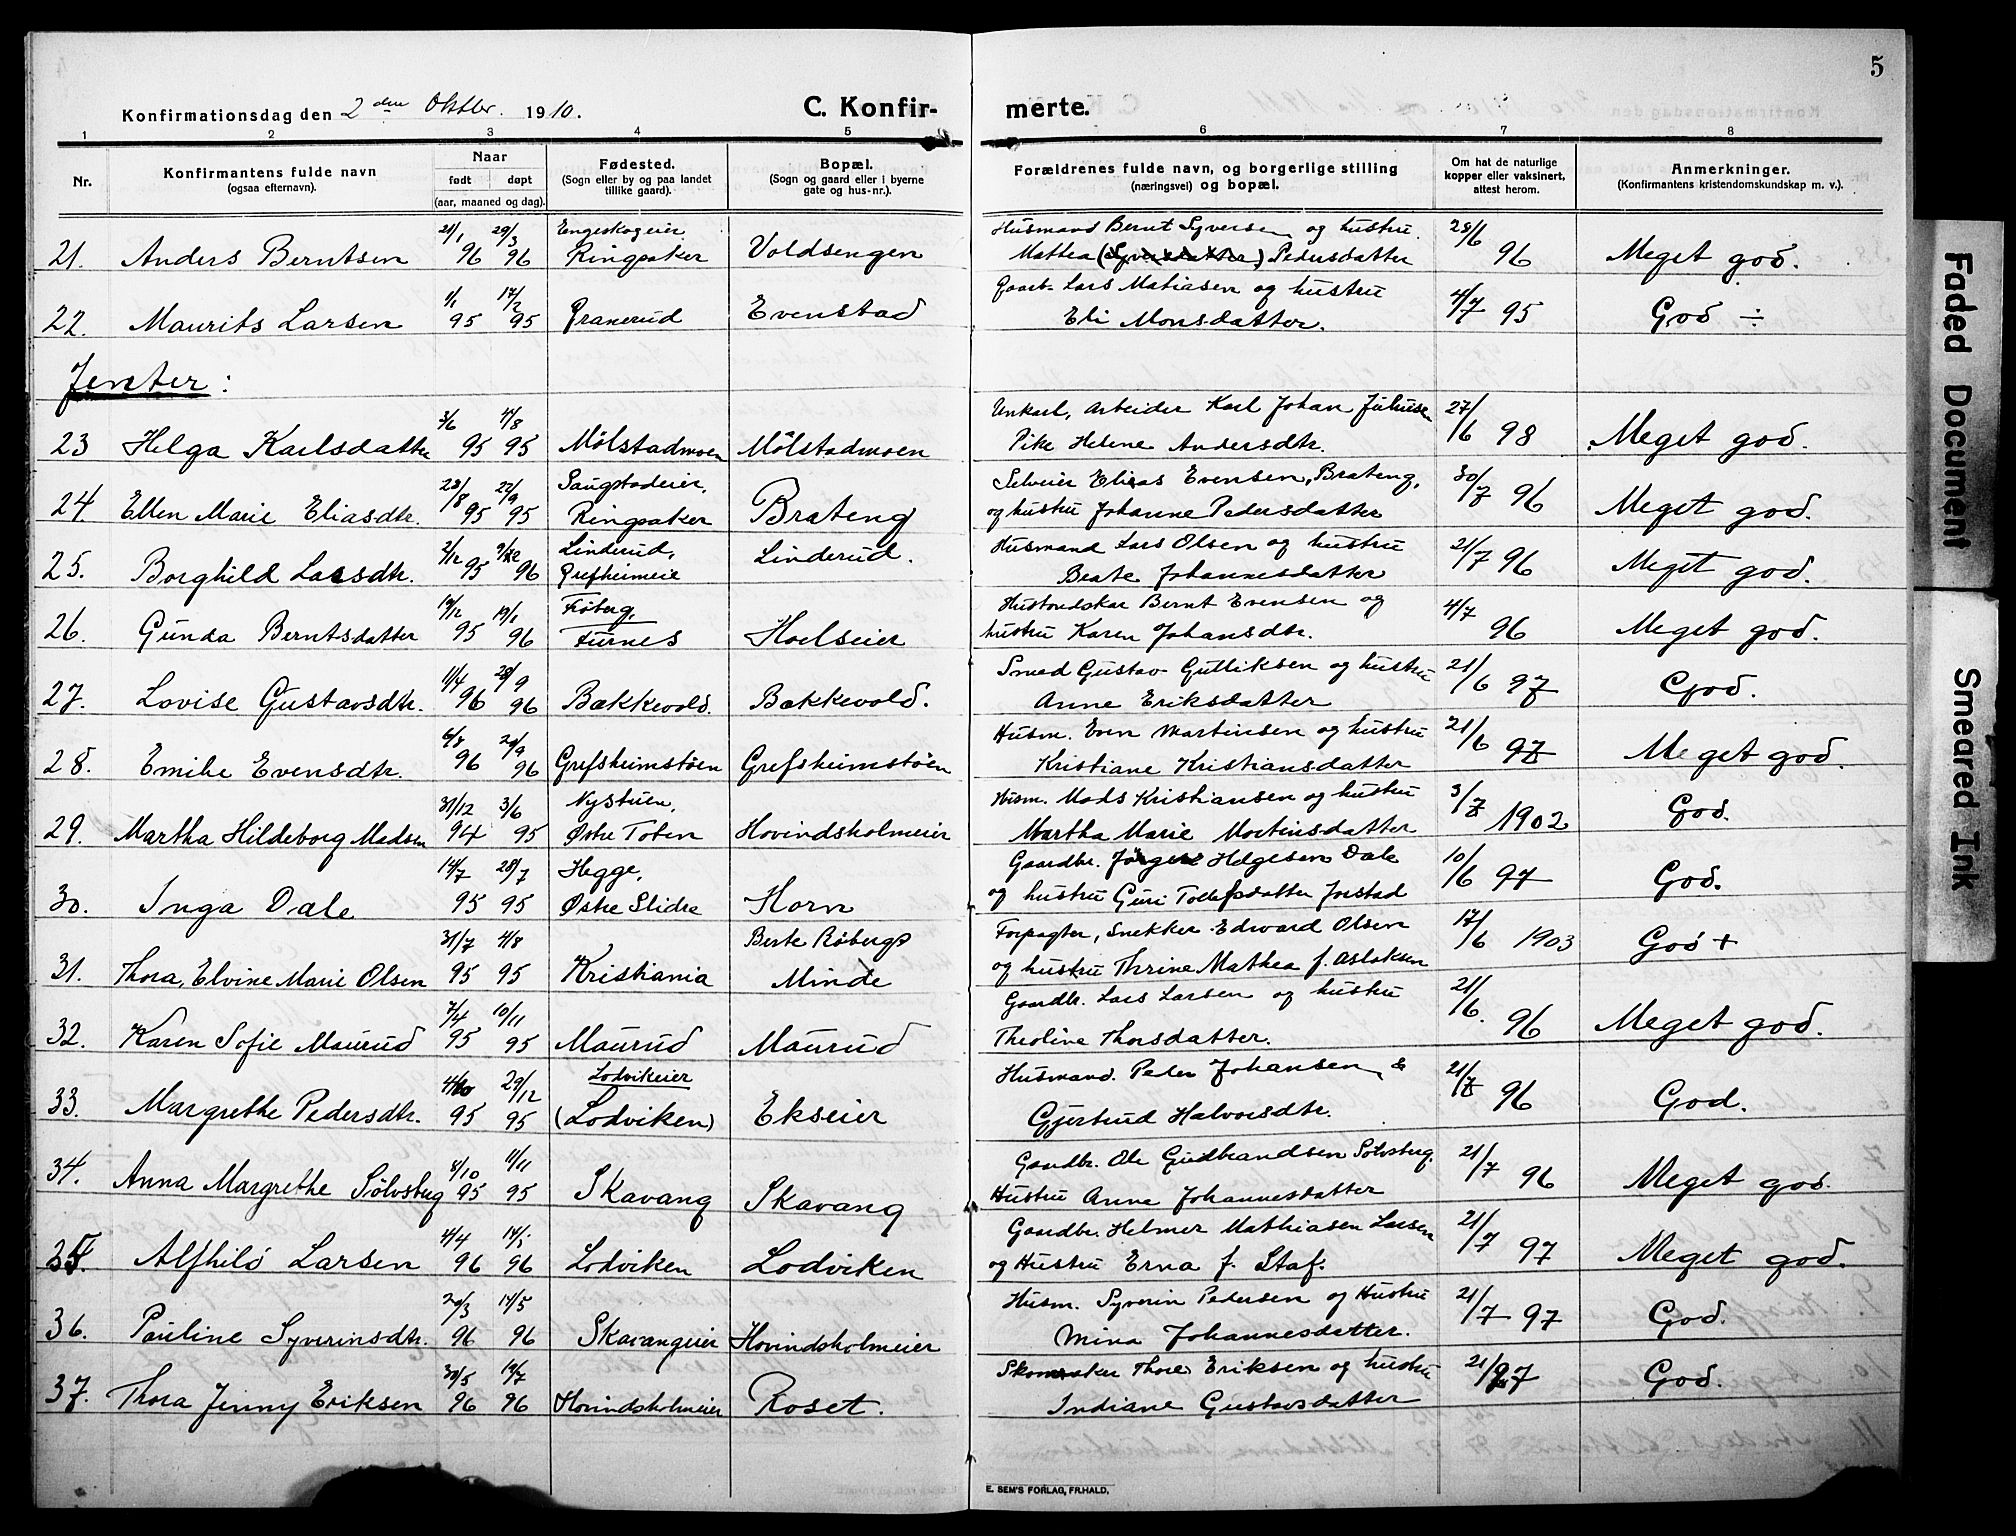 5
Konfirmationsdag den 2den Oktbr. 1910. C. Konfirmerte.
1 2 3 4 5 6 7 8
Nr. Konfirmantens fulde navn (ogsaa efternavn). Naar født døpt (aar, maaned og dag). Fødested. (Sogn eller by og paa landet tillike gaard). Bopæl. (Sogn og gaard eller i byerne gate og hus-nr.). Forældrenes fulde navn, og borgerlige stilling (næringsvei) og bopæl. Om hat de naturlige kopper eller vaksinert, attest herom. Anmerkninger. (Konfirmantens kristendomskundskap m. v.).
21/1 29/3 Engeskogeier Husmand Bernt Syversen og hustru 28/6
21. Anders Berntsen 96 96 Ringsaker Voldsengen Mathea (Syversdatter) Pedersdatter 96 Meget god.
1/1 17/2 Gaardb. Lars Matiasen og hustru
22. Maurits Larsen 95 95 Granerud Evenstad Eli Monsdatter. 4/7 95 God ÷
Jenter:
3/6 4/8 Unkarl, Arbeider Karl Johan Juliusen 27/6
23 Helga Karlsdatter 95 95 Mølstadmoen Mølstadmoen Pike Helene Andersdtr. 98 Meget god.
23/8 22/9 Saugstadeier, Selveier Elias Evensen, Brateng, 30/7
24. Ellen Marie Eliasdtr. 95 95 Ringsaker Brateng og hustru Johanne Pedersdatter 96 Meget god.
2/12 Linderud, Husmand Lars Olsen og hustru 21/7
25. Borghild Larsdtr. 95 96 Grefsheimeie Linderud. Beate Johannesdatter 96 Meget god.
19/12 19/1 Frøberg, Bernt Evensen og 4/7
26. Gunda Berntsdatter 95 96 Furnes Hoelseier hustru Karen Johansdtr. 96 Meget god.
11/4 28/9 Smed Gustav Gulliksen og hustru 21/6
27. Lovise Gustavsdtr. 96 96 Bakkevold. Bakkevold. Anne Eriksdatter 97 God.
6/8 29/9 Husm. Even Martinsen og hustru 21/6
28. Emilie Evensdtr. 96 96 Grefsheimstøen Grefsheimstøen Kristiane Kristiansdatter 97 Meget god.
31/12 3/6 Nystuen, Husm. Mads Kristiansen og hustru 3/7
29. Martha Hildeborg Madsen 94 95 Østre Toten Hovindsholmeier Martha Marie Martinsdatter 1902 God.
14/7 28/7 Hegge, Gaardbr. Jørgen Helgesen Dale 10/6
30. Inga Dale 95 95 Østre Slidre Horn og hustru Guri Tollefsdatter Jorstad 97 God.
31/7 4/8 Berte Røbergs Forpagter, Snekker Edward Olsen 17/6
31. Thora, Elvine Marie Olsen 95 95 Kristiania Minde og hustru Thrine Mathea f. Aslaksen 1903 God +
7/4 10/11 Gaardbr. Lars Larsen og hustru 21/6.
32. Karen Sofie Maurud 95 95 Maurud Maurud Theoline Thorsdatter. 96 Meget god.
4/10 29/12 Lodvikeier Husmand. Peder Johansen & 21/7
33. Margrethe Pedersdtr. 95 95 (Lodviken) Ekseier Gjertrud Halvorsdtr. 96 God.
8/10 11/11 Gaardbr. Ole Gudbrandsen Sølvsberg. 21/7
34. Anna Margrethe Sølvsberg 95 95 Skavang Skavang Hustru Anne Johannesdatter 96 Meget god.
4/4 14/5 Gaardbr. Helmer Mathiasen Larsen 21/7
35. Alfhild Larsen 96 96 Lodviken Lodviken og Hustru Erna f. Staf. 97 Meget god.
29/3 14/5 Husm. Syverin Pedersen og Hustru 21/7
36. Pauline Syverinsdtr. 96 96 Skavangeier Hovindsholmeier Mina Johannesdatter. 97 God.
30/5 19/7 Skomaker Thore Eriksen og hustru
37. Thora Jenny Eriksen 96 96 Hovindsholmeier Roset. Indiane Gustavsdatter 97 God.
E. SEM'S FORLAG, FR.HALD.
Faded Document
Smeared Ink